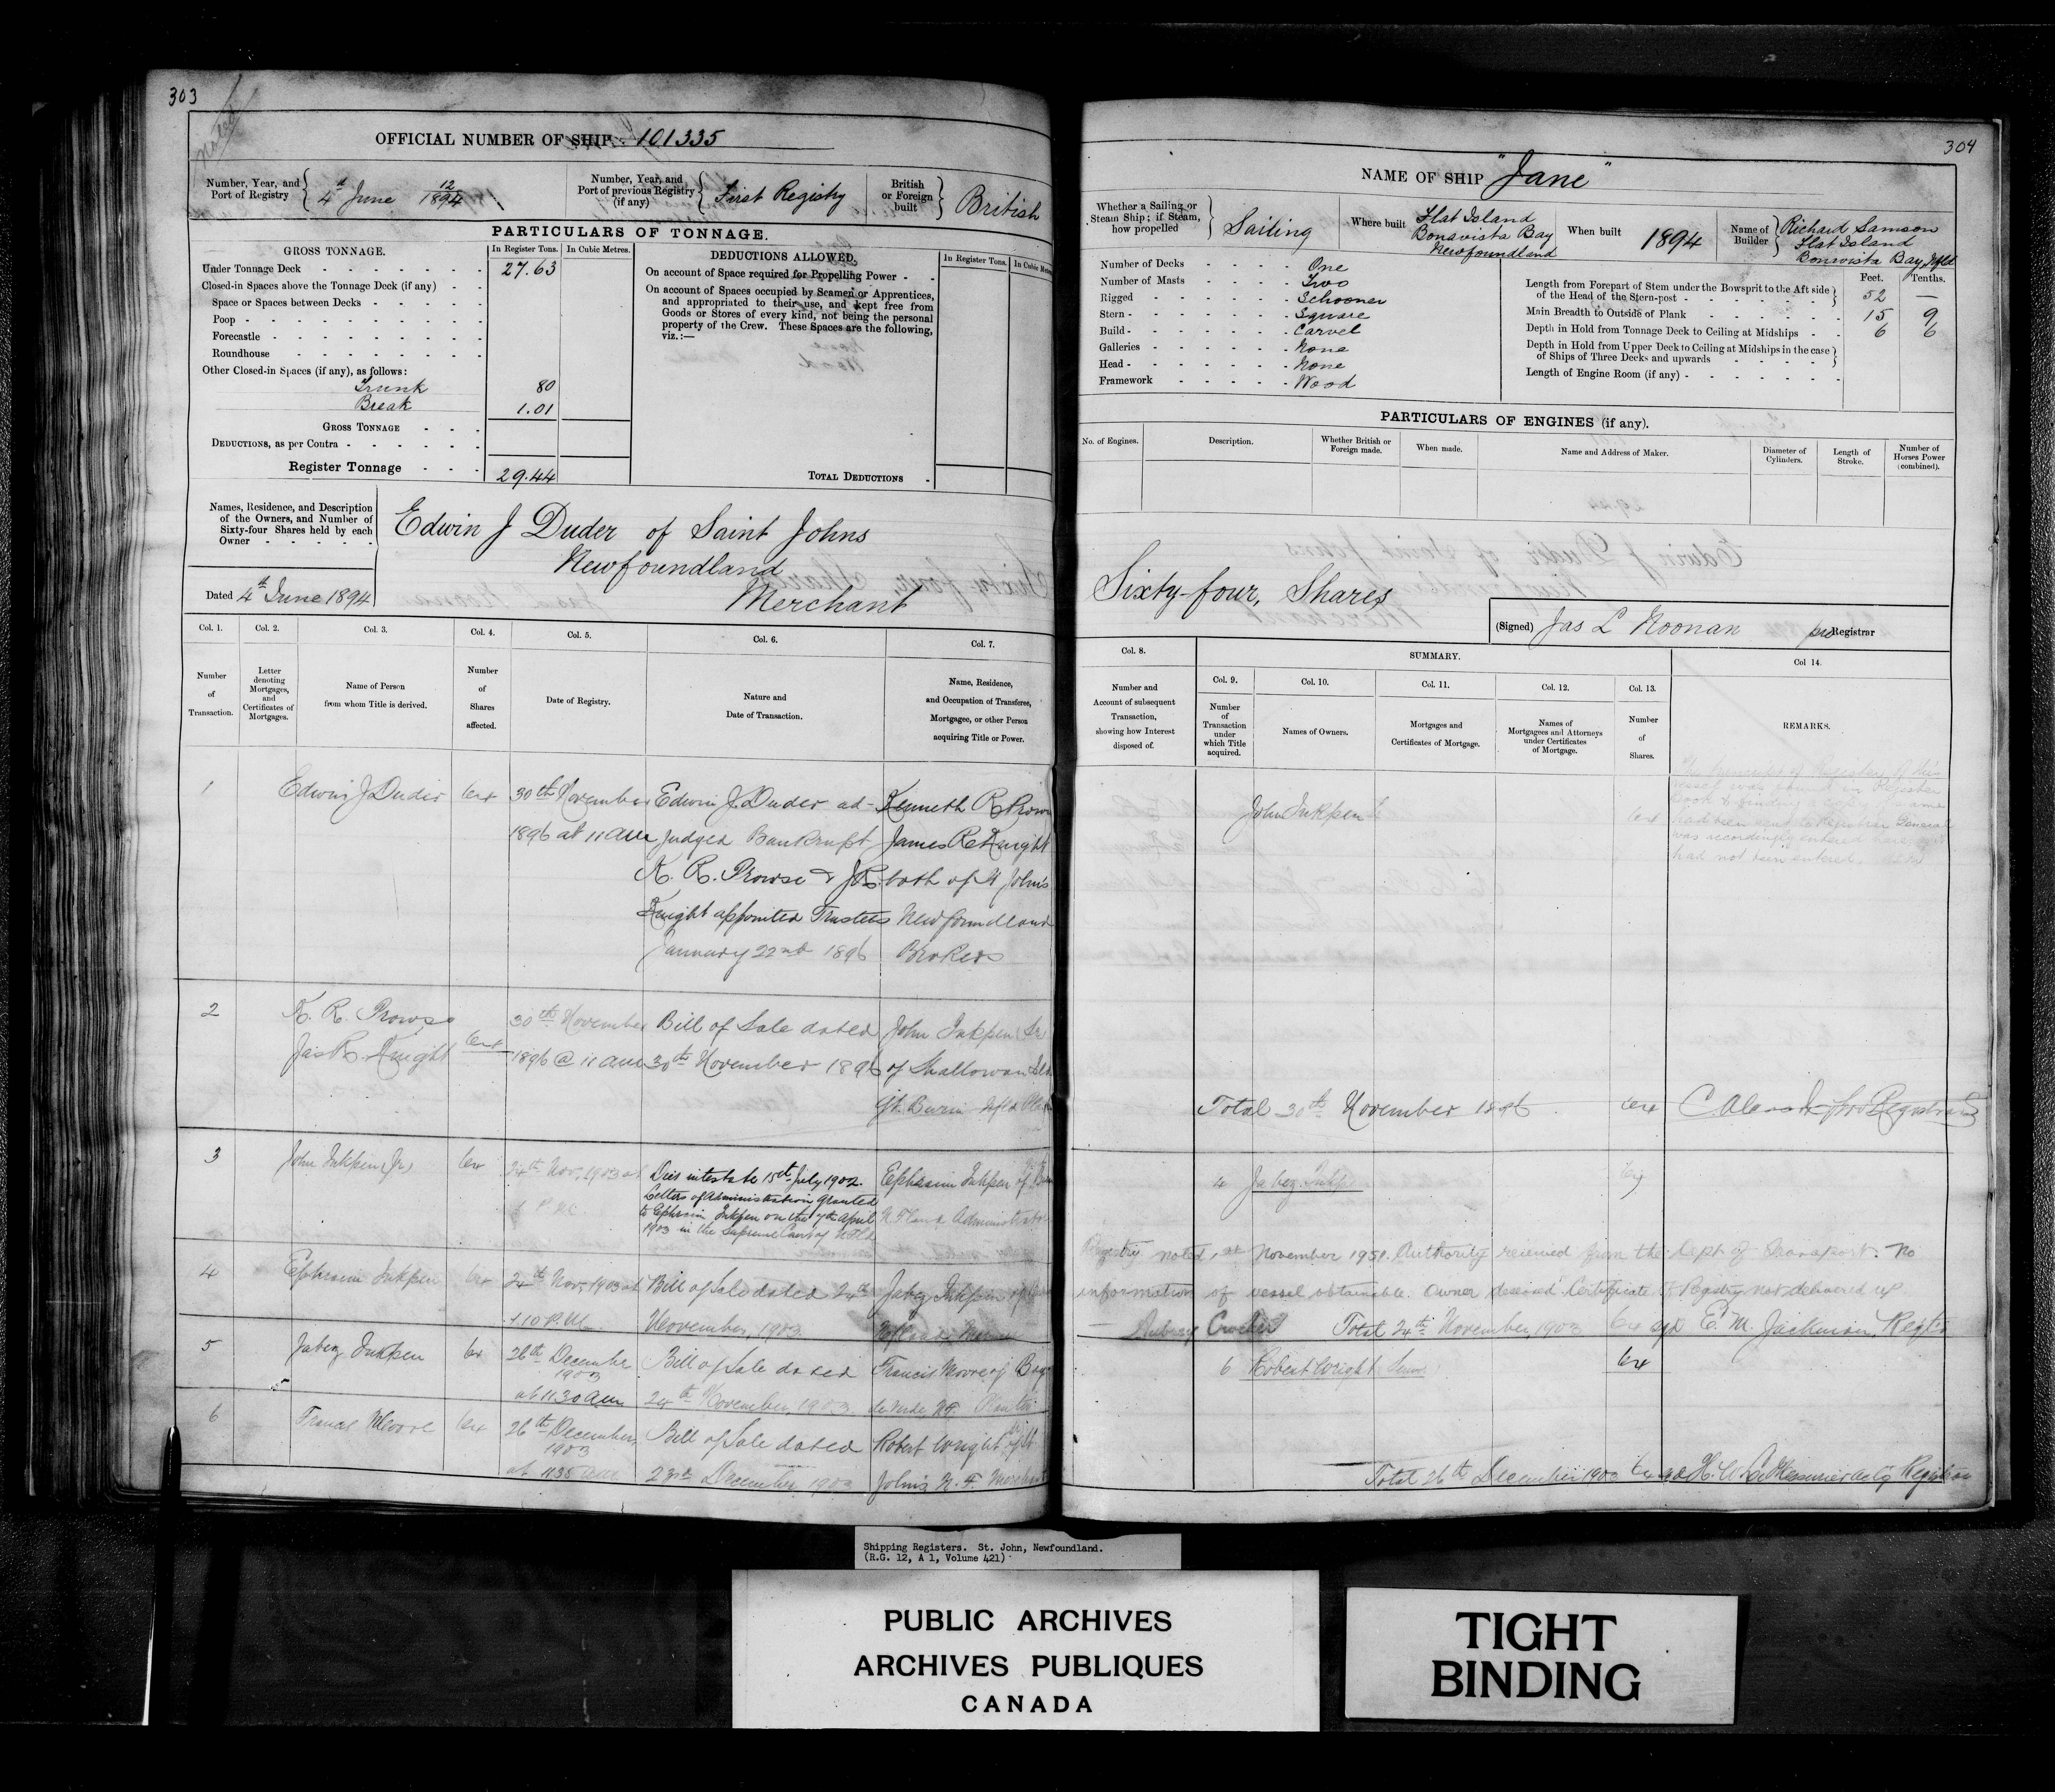 303
Noted
OFFICIAL NUMBER OF SHIP 101335
Number, Year, and Port of Registry 4th June 12/1894
Number, Year, and Port of previous Registry (if any) First Registry
British or Foreign built British
PARTICULARS OF TONNAGE.
GROSS TONNAGE. In Register Tons. In Cubic Metres.
Under Tonnage Deck 27.63
Closed-in Spaces above the Tonnage Deck (if any)
Space or Spaces between Decks
Poop
Forecastle
Roundhouse
Other Closed-in Spaces (if any), as follows:
Trunk 80
Break 1.01
GROSS TONNAGE
DEDUCTIONS, as per Contra
Register Tonnage 29.44
DEDUCTIONS ALLOWED. In Register Tons. In Cubic Metres
On account of Space required for Propelling Power
On account of Spaces occupied by Seamen or Apprentices,
and appropriated to their use, and kept free from
Goods or Stores of every kind, not being the personal
property of the Crew. These Spaces are the following,
viz.:—
TOTAL DEDUCTIONS
Names, Residence, and Description
of the Owners, and Number of
Sixty-four Shares held by each
Owner
Edwin J Duder of Saint Johns
Newfoundland
Merchant
Dated 4th June 1894
Col. 1. Col. 2. Col. 3. Col. 4. Col. 5. Col. 6. Col. 7.
Number of Transaction.
Letter denoting Mortgages, and Certificates of Mortgages.
Name of Person from whom Title is derived.
Number of Shares affected.
Date of Registry.
Nature and Date of Transaction.
Name, Residence, and Occupation of Transferee, Mortgagee, or other Person acquiring Title or Power.
1 Edwin J Duder 64 30th November Edwin J. Duder ad- Kenneth R Prowse
1896 at 11 am judged Bankrupt James R Knight
K. R. Prowse & J R. both of St John's
Knight appointed Trustees Newfoundland
January 22nd 1896 Brokers
2 K. R. Prowse 30th November Bill of Sale dated John Inkpen Sr
Jas R. Knight 64 1896 @ 11 am 30th November 1896 of Shalloway Isld
Burin Nfld
3 John Inkpen 64 24th Nov, 1903 at Dies intestate 15th July 1902. Ephraim Inkpen of
Letters of Administration granted
to Ephraim Inkpen on the 7th April Administrator
1903 in the Supreme Court of Nfld
4 Ephraim Inkpen 64 24th Nov, 1903 at Bill of Sale dated 24th Jabez Inkpen of
1.10 P.M. November, 1903.
5 Jabez Inkpen 64 26th December Bill of Sale dated Francis Moore of Bay
1903
at 11.30 am 24th November, 1903. de Verde N.F. Planter
6 Francis Moore 64 26th December, Bill of Sale dated Robert Wright of St
1903
at 11.35 am 23rd December, 1903 John's N. F. Merchant
304
NAME OF SHIP "Jane"
Whether a Sailing or Steam Ship; if Steam, how propelled Sailing
Where built Flat Island
Bonavista Bay
Newfoundland
When built 1894
Name of Builder Richard Samson
Flat Island
Bonavista Bay Nfld
Number of Decks One
Number of Masts Two
Rigged Schooner
Stern Square
Build Carvel
Galleries None
Head None
Framework Wood
Feet. Tenths.
Length from Forepart of Stem under the Bowsprit to the Aft side of the Head of the Stern-post 52 —
Main Breadth to Outside of Plank 15 9
Depth in Hold from Tonnage Deck to Ceiling at Midships 6 6
Depth in Hold from Upper Deck to Ceiling at Midships in the case of Ships of Three Decks and upwards
Length of Engine Room (if any)
PARTICULARS OF ENGINES (if any).
No. of Engines. Description. Whether British or Foreign made. When made. Name and Address of Maker. Diameter of Cylinders. Length of Stroke. Number of Horses Power (combined).
Sixty-four, Shares
(Signed) Jas L Noonan pro Registrar
Col. 8. SUMMARY. Col 14.
Col. 9. Col. 10. Col. 11. Col. 12. Col. 13.
Number and Account of subsequent Transaction, showing how Interest disposed of.
Number of Transaction under which Title acquired.
Names of Owners.
Mortgages and Certificates of Mortgage.
Names of Mortgagees and Attorneys under Certificates of Mortgage.
Number of Shares.
REMARKS.
John Inkpen 64
No transcript of Registry of this
vessel was found in Register
had been sent to Registrar General
was accordingly entered here
had not been entered.
Total 30th November 1896 64 pro Registrar
4 Jabez Inkpen 64
Registry noted 1st November 1951. Authority received from the Dept of Transport. No
information of vessel obtainable. Owner deceased Certificate of Registry not delivered up
Total 24th November, 1903 64 E. M. Jackman, Regtr
6 Robert Wright 64
Total 26th December 1903 64 H. W. LeMessurier Actg Registrar
Shipping Registers. St. John, Newfoundland.
(R.G. 12, A 1, Volume 421)
PUBLIC ARCHIVES
ARCHIVES PUBLIQUES
CANADA
TIGHT
BINDING